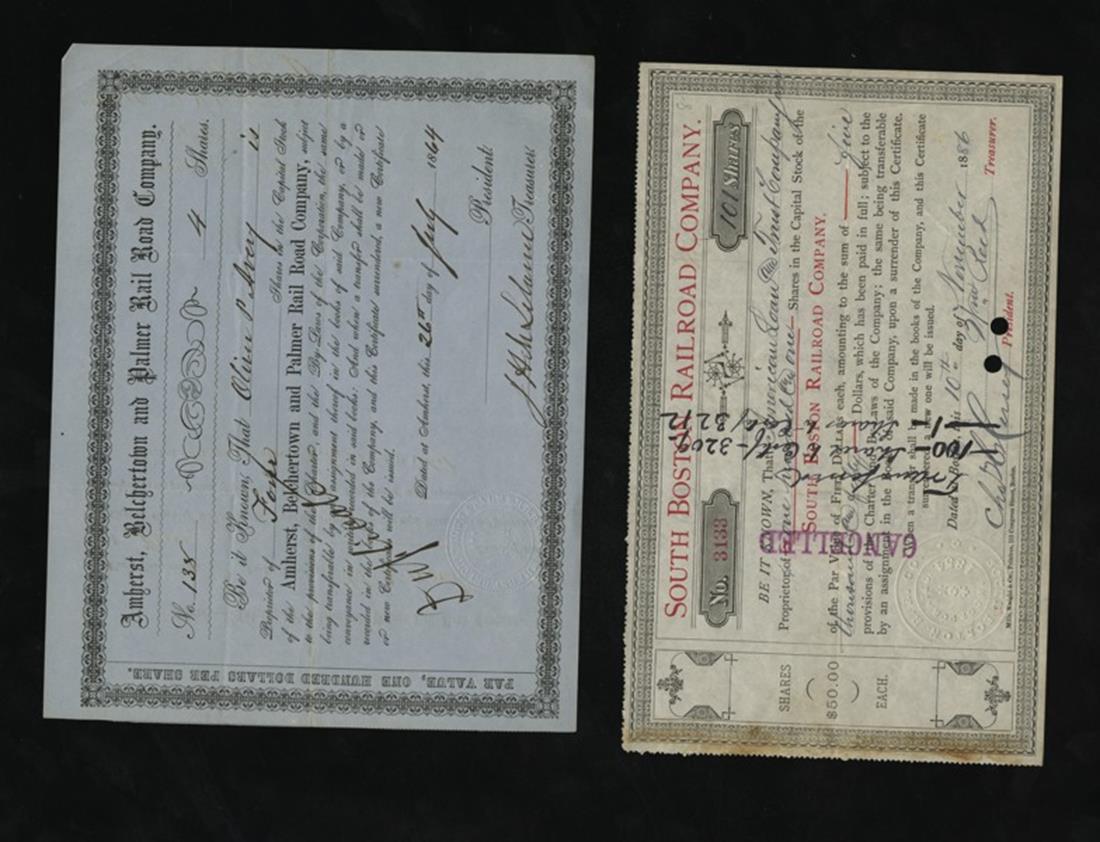 Amherst, Belchertown and Palmer Rail Road Company.
No. 135 4 Shares.
Be it Known, That Olive P. is
Proprietor of Four Shares in the Capital Stock
of the Amherst, Belchertown and Palmer Rail Road Company, subject
to the provisions of the Charter, and the By-Laws of the Corporation, the same
being transferable by an assignment thereof in the books of said Company, or by a
conveyance in writing recorded in said books: And when a transfer shall be made or
recorded in the books of the Company, and this Certificate surrendered, a new Certificate
or new Certificates will be issued.
Dated at Amherst, this 26th day of July 1864
President
Treasurer
PAR VALUE, ONE HUNDRED DOLLARS PER SHARE.
SOUTH BOSTON RAILROAD COMPANY.
No. 3133 101 Shares
BE IT KNOWN, That American Loan and Trust Company
Proprietor of One hundred and one Shares in the Capital Stock of the
SOUTH BOSTON RAILROAD COMPANY.
of the Par Value of FIFTY DOLLARS each, amounting to the sum of Five
thousand and fifty Dollars, which has been paid in full; subject to the
provisions of the Charter and By-Laws of the Company; the same being transferable
by an assignment in the books of said Company, upon a surrender of this Certificate.
When a transfer shall be made in the books of the Company, and this Certificate
surrendered, a new one will be issued.
Dated Boston, this 10th day of November 1886
President. Treasurer.
CANCELLED
Transferred
100 - Shares Cert. - 3202
1 - Share 3212
SHARES
$50.00
EACH.